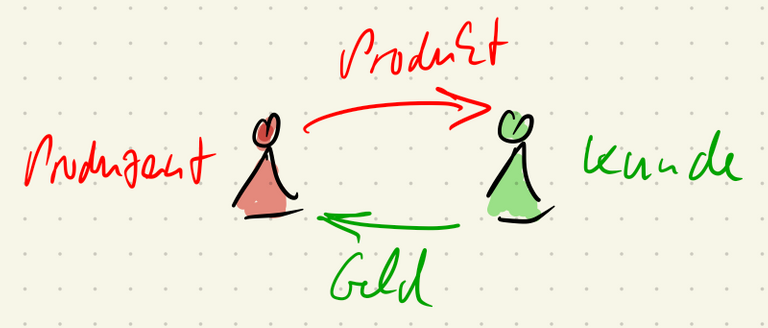 Produkt
Produzent
Kunde
Geld